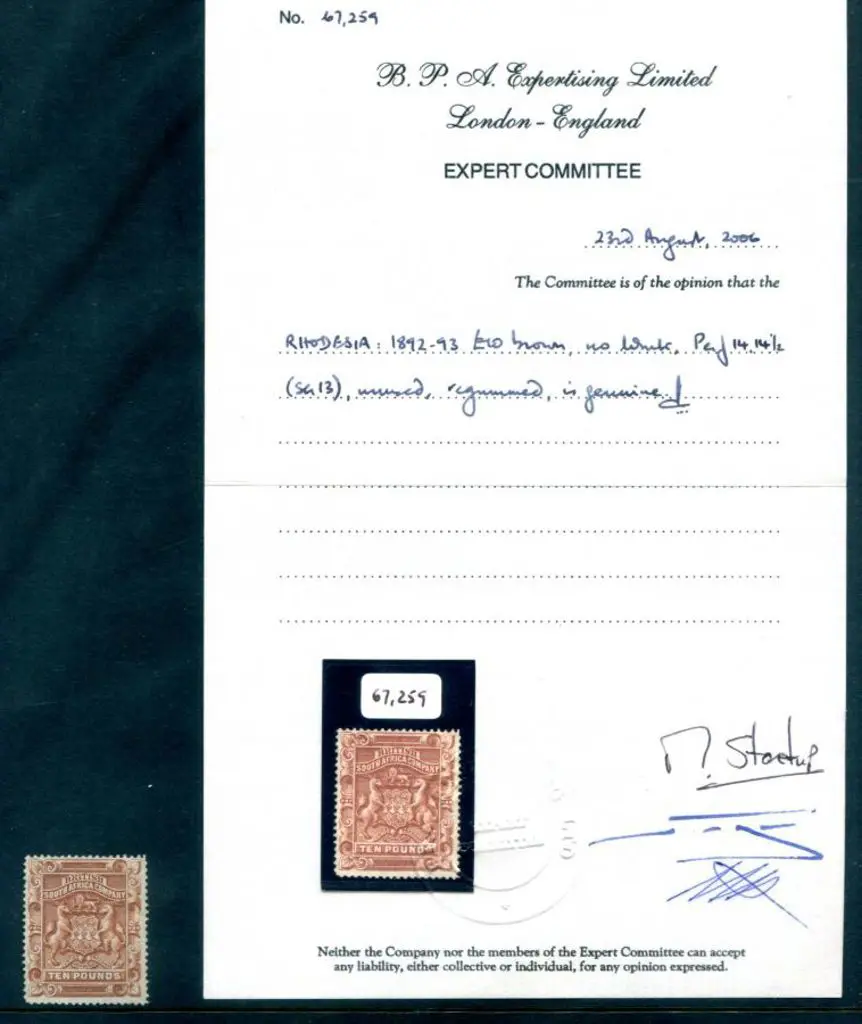 No. 67,259
B. P. A. Expertising Limited
London - England
EXPERT COMMITTEE
23rd August, 2006
The Committee is of the opinion that the
RHODESIA: 1892-93 £10 brown, no wmk, Perf 14, 14½
(SG 13), unused, regummed, is genuine.
67,259
BRITISH
SOUTH AFRICA COMPANY
TEN POUNDS
M. Startup
BRITISH
SOUTH AFRICA COMPANY
TEN POUNDS
Neither the Company nor the members of the Expert Committee can accept
any liability, either collective or individual, for any opinion expressed.